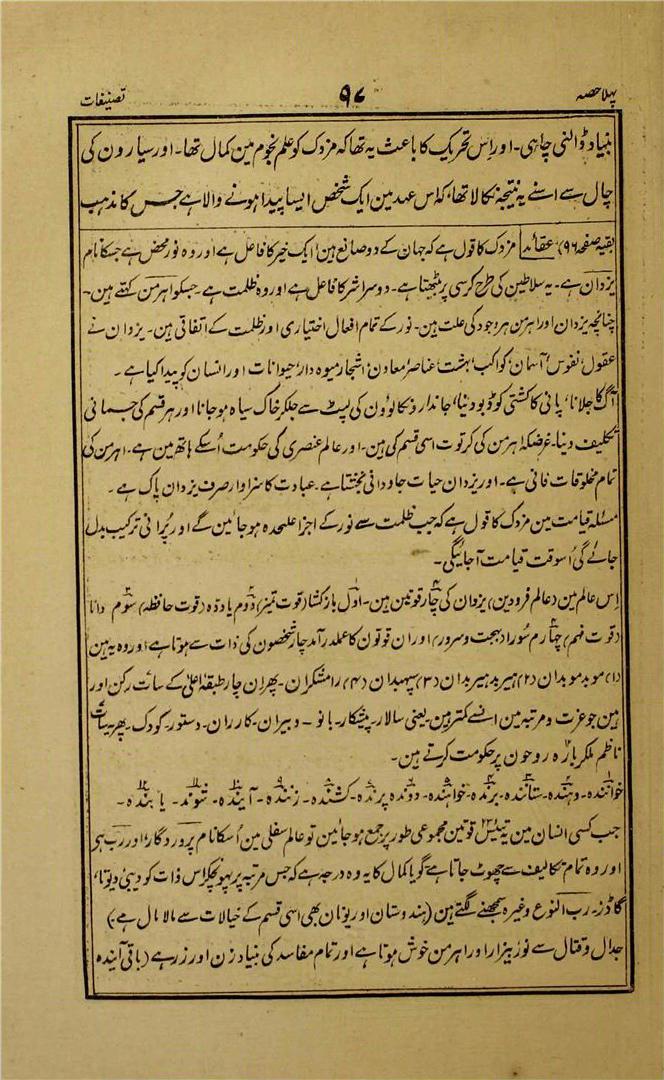 پہلا حصہ ۹۷ تصنیفات
بنیاد ڈالنی چاہی۔ اور اِس تحریک کا باعث یہ تھا کہ مزدک کو علم نجوم مین کمال تھا۔ اور سیارون کی
چال سے اسنے یہ نتیجہ نکالا تھا، کہ اس عہد مین ایک شخص ایسا پیدا ہونے والا ہے جس کا مذہب
(بقیہ صفحہ ۹۶) عقائد مزدک کا قول ہے کہ جہان کے دو صانع ہین، ایک خیر کا فاعل ہے اور وہ نور محض ہے جسکا نام
یزدان ہے۔ یہ سلاطین کی طرح کرسی پر بیٹھتا ہے۔ دوسرا شر کا فاعل ہے اور وہ ظلمت ہے۔ جسکو اہرمن کہتے ہین۔
چنانچہ یزدان اور اہرمن ہر وجود کی علت ہین۔ نور کے تمام افعال اختیاری اور ظلمت کے اتفاقی ہین۔ یزدان نے
عقول، نفوس، آسمان، کواکب، بہشت، عناصر، معاون، اشجار میوہ دار، حیوانات اور انسان کو پیدا کیا ہے۔
آگ کا جلانا، پانی کا کشتی کو ڈبو دینا، جاندارونکا لُوون کی لپٹ سے جلکر خاک سیاہ ہو جانا اور ہر قسم کی جسمانی
تکلیف دینا۔ غرضکہ اہرمن کی کرتوت اسی قسم کی ہین۔ اور عالم عنصری کی حکومت اُسکے ہاتھ مین ہے۔ اہرمن کی
تمام مخلوقات فانی ہے۔ اور یزدان حیات جاودانی بخشتا ہے۔ عبادت کا سزاوار صرف یزدان پاک ہے۔
مسئلہ قیامت مین مزدک کا قول ہے کہ جب ظلمت سے نور کے اجزا علیحدہ ہو جائین گے اور پُرانی ترکیب بدل
جائے گی اُسوقت قیامت آجائیگی۔
اِس عالم مین (عالم فرودین) یزدان کی چار قوتین ہین۔ اوّل بازکشا (قوت تمیز) دوم یادوہ (قوت حافظہ) سوم دانا
(قوت فہم) چہارم سُورا (بہجت و سرور) اور ان قوتون کا عملدرآمد چار شخصون کی ذات سے ہوتا ہے اور وہ یہ ہین
(۱) موبد موبدان (۲) ہیربد ہیربدان (۳) سپہبدان (۴) رامشگران۔ پھر ان چار طبقۂ اعلیٰ کے سات رکن اور
ہین جو عزت و مرتبہ مین انسے کمتر ہین۔ یعنی سالار۔ پیشکار۔ بانو۔ دبیران۔ کارران۔ دستور۔ کودک۔ پھر یہ سات
ناظم ملکر بارہ روحون پر حکومت کرتے ہین۔
خوانندہ۔ دہندہ۔ ستانندہ۔ برندہ۔ خواہندہ۔ دوندہ پرندہ۔ کشندہ۔ زنندہ۔ آیندہ۔ شوند۔ یابندہ۔
جب کسی انسان مین تیئیس قوتین مجموعی طور پر جمع ہو جائین تو عالم سفلی مین اُسکا نام پروردگار، اور رب ہی
اور وہ تمام تکالیف سے چھوٹ جاتا ہے گویا کمال کا یہ وہ درجہ ہے کہ جس مرتبہ پر پہونچکر اس ذات کو دیبی دیوتا،
گاڈز۔ رب النوع وغیرہ سمجھنے لگتے ہین (ہندوستان اور یونان بھی اسی قسم کے خیالات سے مالا مال ہے۔)
جدال و قتال سے نور بیزار اور اہرمن خوش ہوتا ہے اور تمام مفاسد کی بنیاد زن اور زر ہے (باقی آیندہ